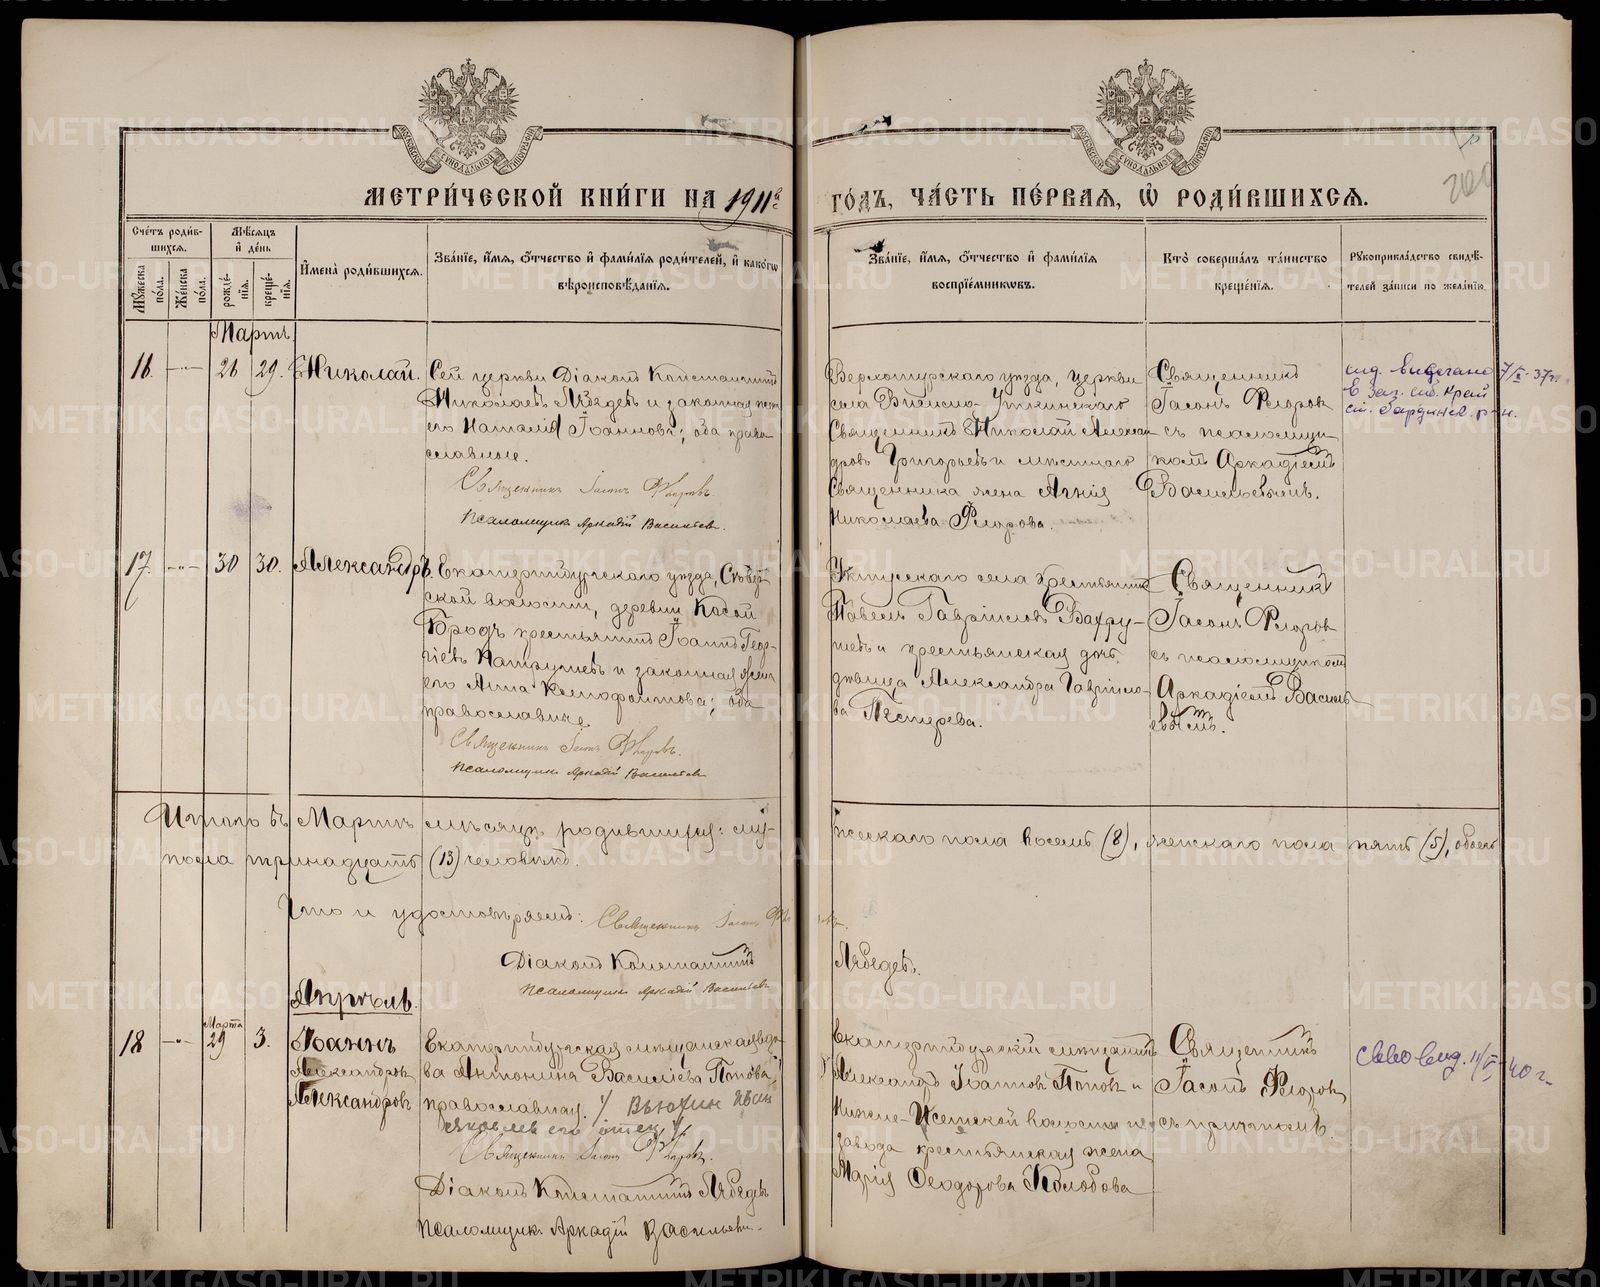 МЕТРИ́ЧЕСКОЙ КНИ́ГИ НА 1911й
ГО́ДЪ, ЧА́СТЬ ПЕ́РВАЯ, Ѡ РОДИ́ВШИХСЯ.
Счётъ роди́в-
шихся.
Мужеска по́ла.
Же́нска по́ла.
Мѣ́сяцъ
и де́нь
рожде́-
нія.
креще́-
нія.
Имена̀ роди́вшихся.
Зва́ніе, и́мя, о́тчество и фами́лія роди́телей, и како́гѡ
вѣроисповѣ́данія.
Зва́ніе, и́мя, о́тчество и фами́лія
воспріе́мникѡвъ.
Кто̀ соверша́лъ та́инство
креще́нія.
Рукоприкла́дство свидѣ́-
телей за́писи по жела́нію.
Мартъ
16. — " — 26 29. Николай.
Сей церкви Діаконъ Константинъ
Николаевъ Лебедевъ и законная жена
его Наталія Іоаннова; оба право-
славные.
Священникъ Іасонъ Флоровъ.
Псаломщикъ Аркадій Васильевъ.
Верхотурскаго уѣзда, церкви
села Висимо-Уткинскаго
Священникъ Николай Алексан-
дровъ Григорьевъ и мѣстнаго
Священника жена Агнія
Николаева Флорова.
Священникъ
Іасонъ Флоровъ
съ псаломщи-
комъ Аркадіемъ
Васильевымъ.
выдано 7/X-37г.
17. — " — 30 30. Александръ.
Екатеринбургскаго уѣзда, Сѣвер-
ской волости, деревни Косой
Бродъ крестьянинъ Іоаннъ Геор-
гіевъ Катрушевъ и законная жена
его Анна Ксенофонтова; оба
православные
Священникъ Іасонъ Флоровъ.
Псаломщикъ Аркадій Васильевъ
Уктусскаго села крестьянинъ
Павелъ Гавріиловъ Вахру-
шевъ и крестьянская дочь
дѣвица Александра Гавріило-
ва Пестерева.
Священникъ
Іасонъ Флоровъ
съ псаломщикомъ
Аркадіемъ Василь-
евымъ.
Итого въ Мартѣ мѣсяцѣ родившихся: му-
жескаго пола восемь (8), женскаго пола пять (5), обоего
пола тринадцать (13) человѣкъ.
Что и удостовѣряемъ: Священникъ Іасонъ Флоровъ.
Діаконъ Константинъ
Лебедевъ.
Псаломщикъ Аркадій Васильевъ
Апрѣль.
18 — " — Марта 29 3. Іоаннъ
Александровъ
Александровъ
Екатеринбургская мѣщанская вдо-
ва Антонина Васильева Попова,
православная.
его отец
Священникъ Іасонъ Флоровъ.
Діаконъ Константинъ Лебедевъ
Псаломщикъ Аркадій Васильевъ.
Екатеринбургскій мѣщанинъ
Александръ Іоанновъ Поповъ и
Нижне-Исетской волости и
завода крестьянская жена
Марія Ѳеодорова Колобова
Священникъ
Іасонъ Флоровъ
съ причтомъ.
св-во выд. 11/V-40 г.